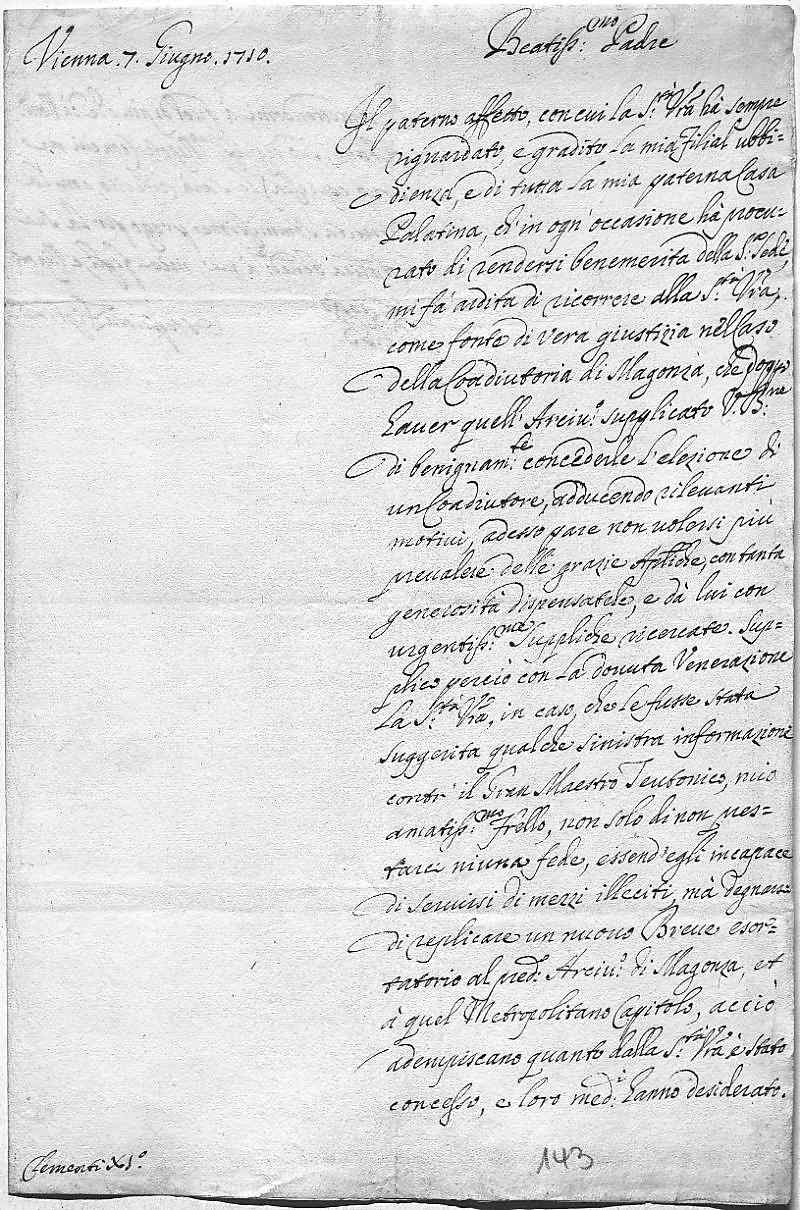 Vienna. 7. Giugno. 1710.
Beatiss:mo Padre
Il paterno affetto, con cui la S.tà Vra hà sempre
riguardato, e gradito la mia filial' ubbi-
dienza, e di tutta la mia paterna Casa
Palatina, ch' in ogn' occasione hà procu-
rato di rendersi benemerita della S.ta Sede,
mi fà ardita di ricorrere alla S.tà Vra,
come fonte di vera giustizia nel Caso
della Coadiutoria di Magonza, che dopo
haver quell' Arciv.o supplicato V. B:ne
di benignam:te concederle l'elezione di
un Coadiutore, adducendo rilevanti
motivi, adesso pare non volersi più
prevalere delle grazie Apliche, con tanta
generosità dispensatele, e dà lui con
urgentiss:me suppliche ricercate. Sup-
plico perciò con la dovuta Venerazione
la S.tà Vra, in caso, che le fusse stata
suggerita qualche sinistra informazione
contr' il Gran Maestro Teutonico, mio
amatiss:mo frello, non solo di non pres-
tarci niuna fede, essend' egli incapace
di servirsi di mezzi illeciti, mà degnarsi
di replicare un nuovo Breve esor-
tatorio al pred: Arciv.o di Magonza, et
à quel Metropolitano Capitolo, acciò
adempiscano quanto dalla S.tà Vra è stato
concesso, e loro med:i hanno desiderato.
Clementi XI.o
143